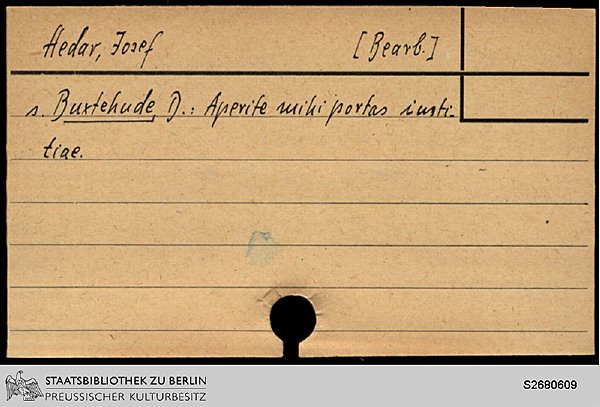 Hedar, Josef [Bearb.]
s. Buxtehude D.: Aperite mihi portas iusti-
tiae.
STAATSBIBLIOTHEK ZU BERLIN
PREUSSISCHER KULTURBESITZ
S2680609